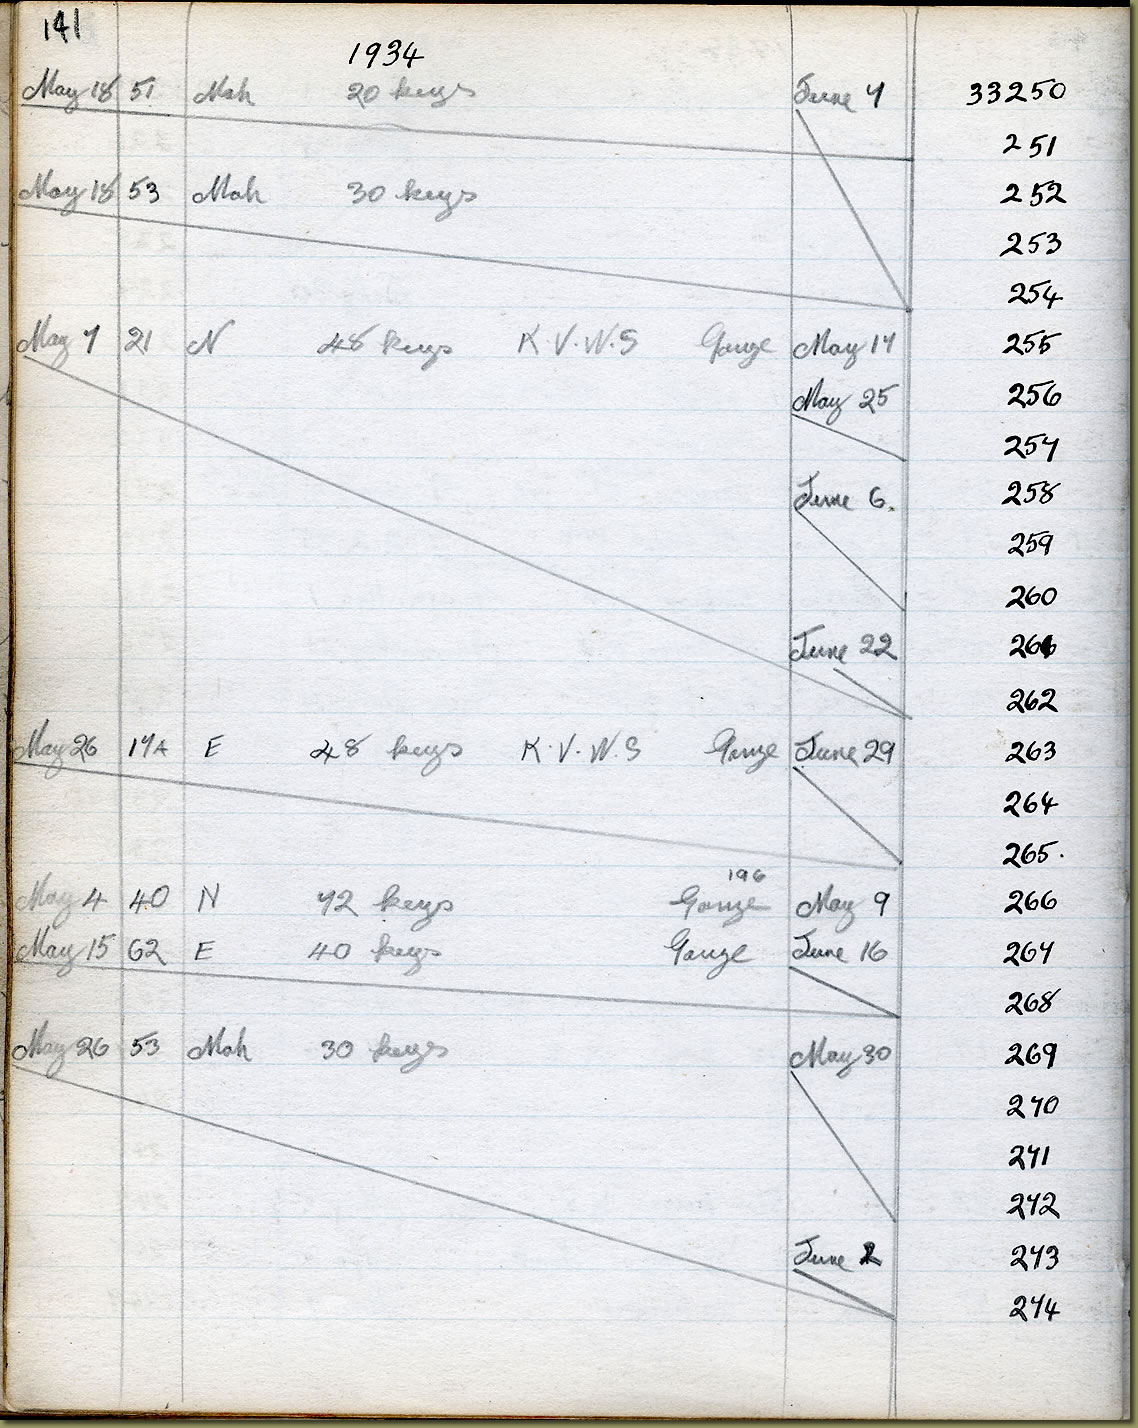 141
1934
May 18 51 Mah 20 keys June 7 33250
251
May 18 53 Mah 30 keys 252
253
254
May 7 21 N 48 keys K.V.W.S Gauze May 17 255
May 25 256
257
June 6. 258
259
260
June 22 261
262
May 26 17A E 48 keys K.V.W.S Gauze June 29 263
264
265.
196
May 4 40 N 72 keys Gauze May 9 266
May 15 62 E 40 keys Gauze June 16 267
268
May 26 53 Mah 30 keys May 30 269
270
271
272
June 2 273
274